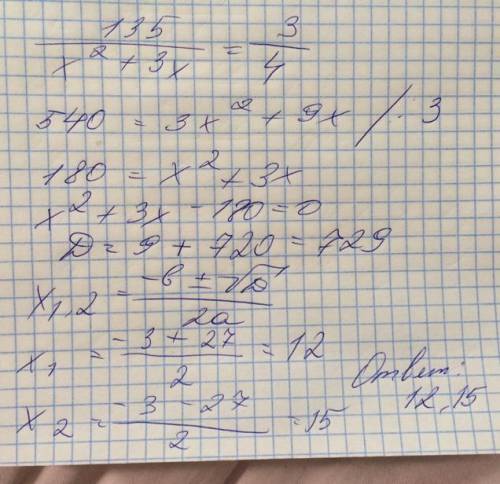 135 / x² + 3x = 3 / 4
540 = 3x² + 9x / : 3
180 = x² + 3x
x² + 3x - 180 = 0
D = 9 + 720 = 729
x₁,₂ = -в ± √D / 2a
x₁ = -3 + 27 / 2 = 12
x₂ = -3 - 27 / 2 = 15
Ответ:
12, 15